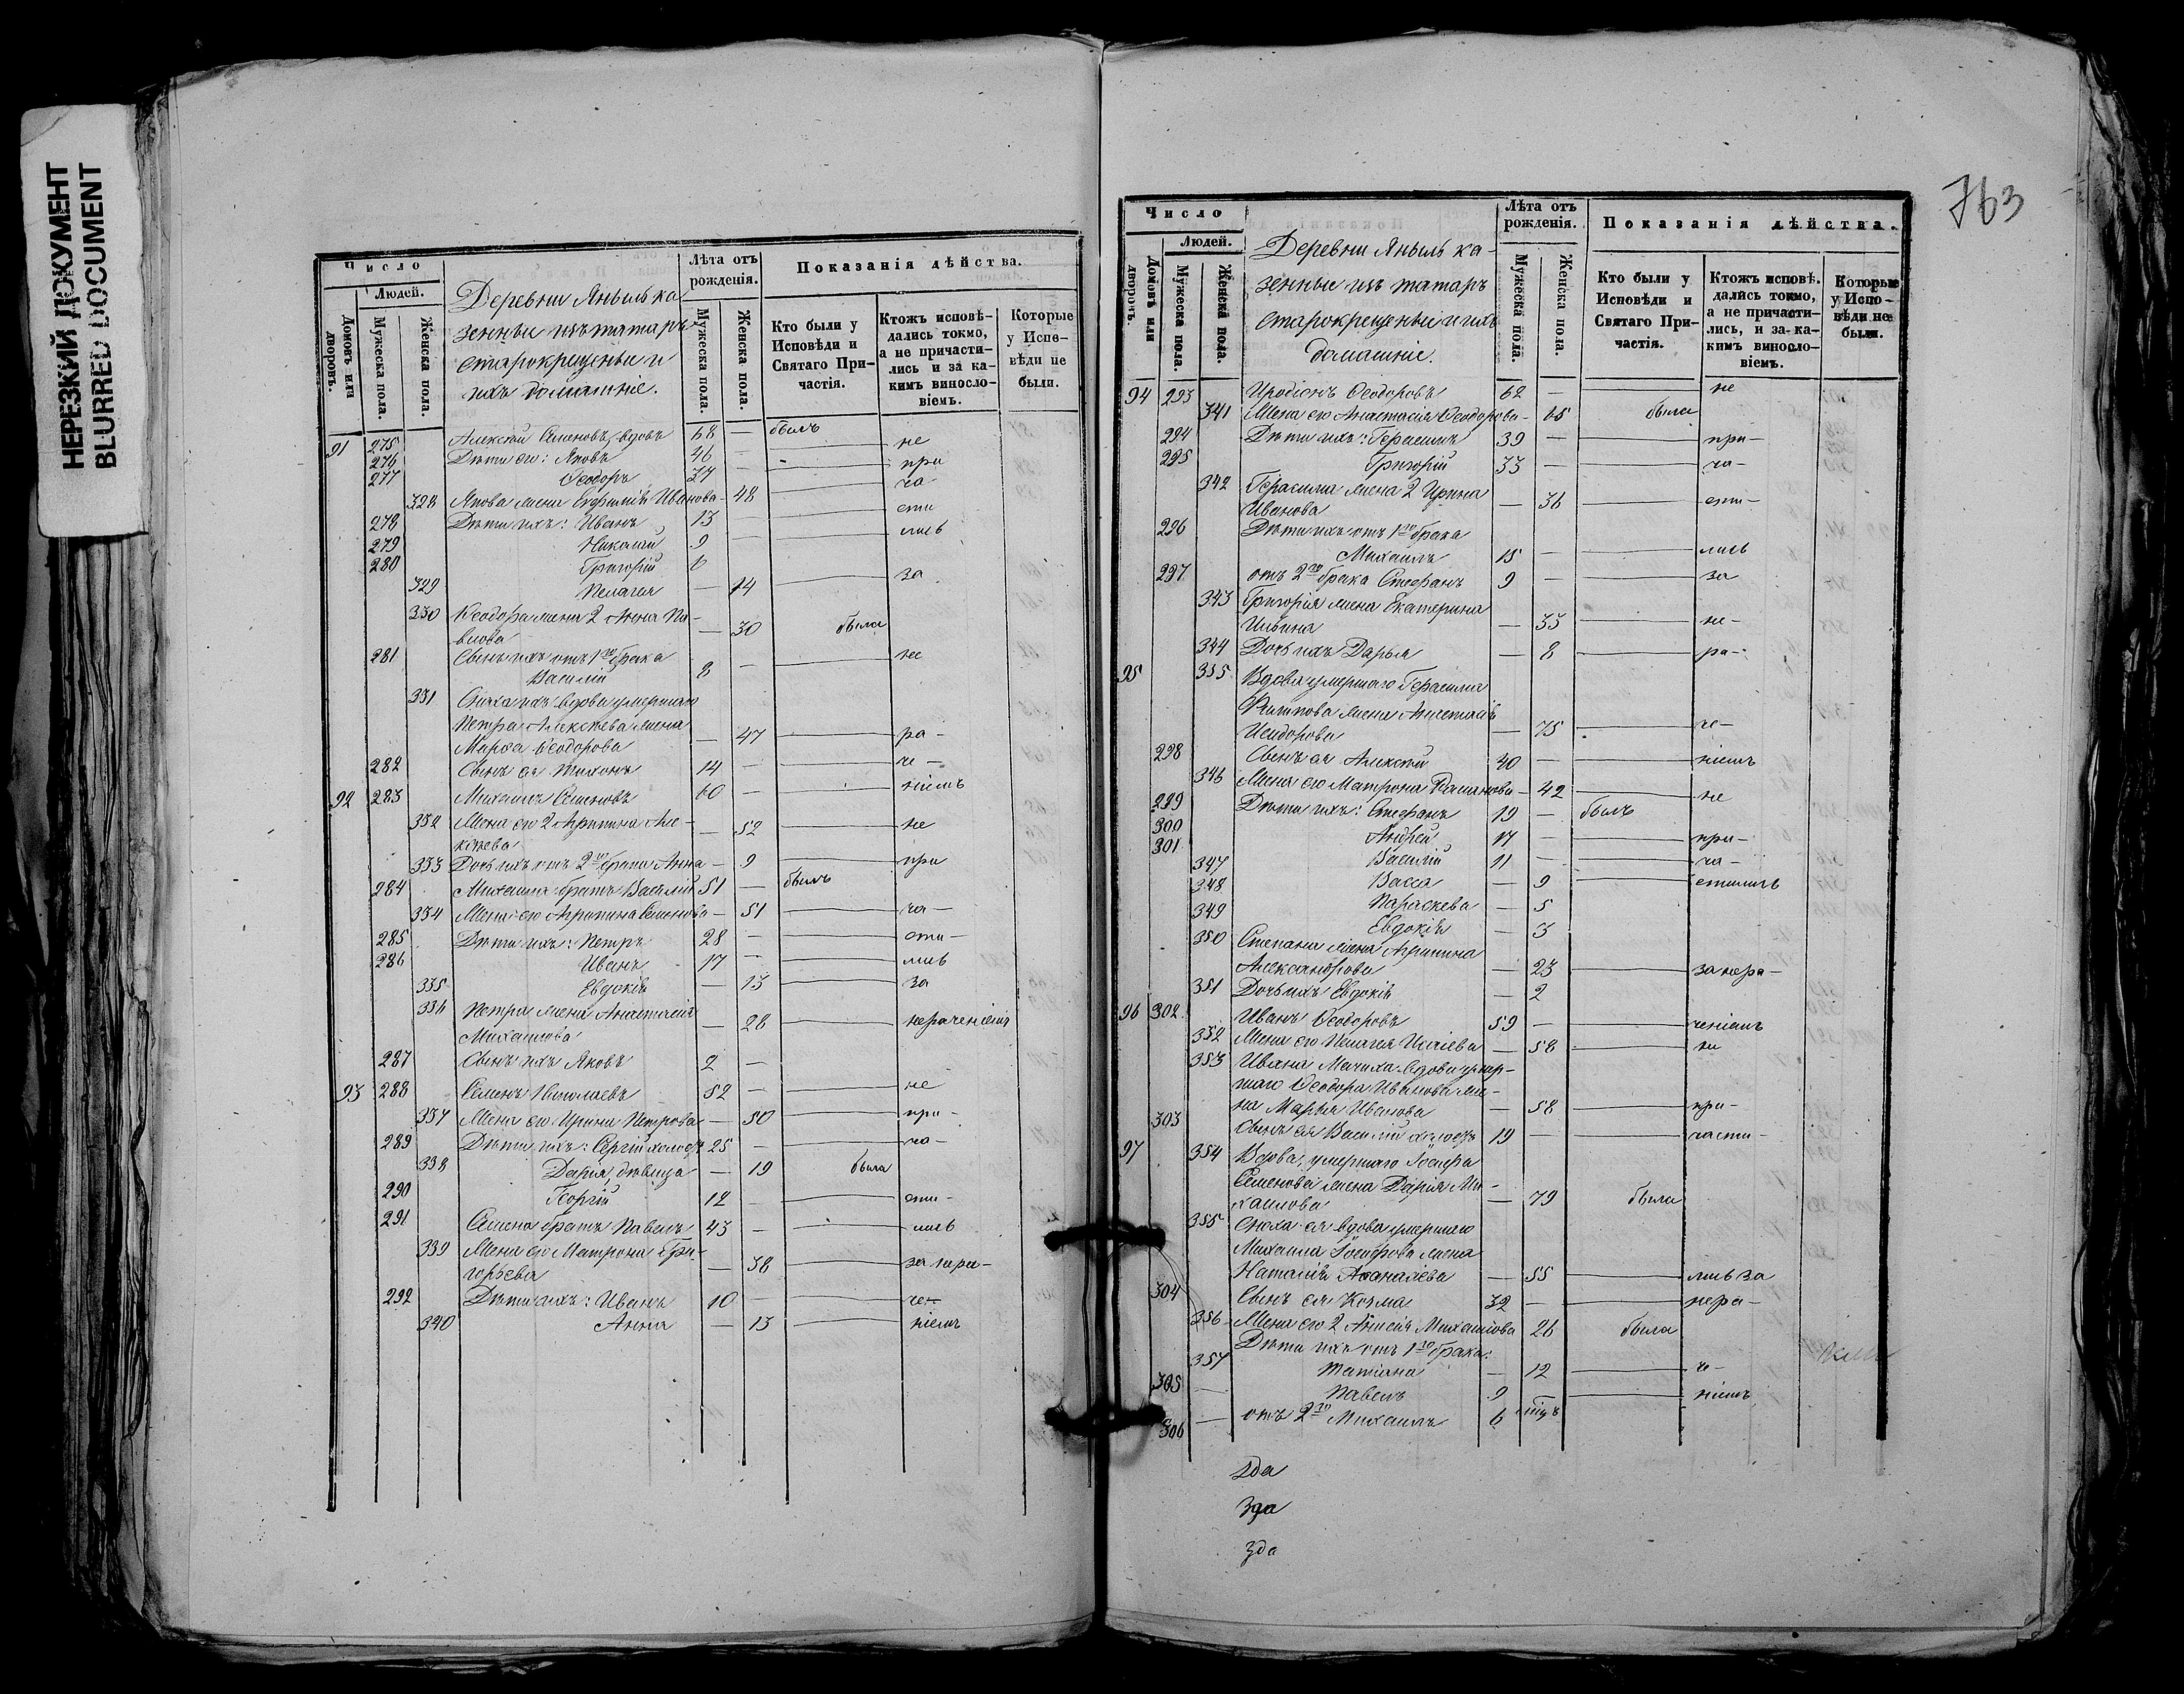 НЕРЕЗКИЙ ДОКУМЕНТ
BLURRED DOCUMENT
Число
Людей.
Домовъ или дворовъ.
Мужеска пола.
Женска пола.
Деревни Яныль ка
зенные изъ татаръ
старокрещеные и
ихъ домашніе.
Лѣта отъ рожденія.
Мужеска пола.
Женска пола.
Показанія дѣйства.
Кто были у Исповѣди и Святаго Причастія.
Ктожъ исповѣдались токмо, а не причастились и за какимъ винословіемъ.
Которые у Исповѣди не были.
91 275 Алексѣй Семеновъ, вдовъ 68 — былъ
276 Дѣти его: Яковъ 46 — не
277 Ѳеодоръ 37 при
328 Якова жена Евфимія Иванова — 48 ча
278 Дѣти ихъ: Иванъ 13 сти
279 Николай 9 — лись
280 Григорій 6
329 Пелагея — 14 за
330 Ѳеодора жена 2 Анна Па-
влова — 30 была
281 Сынъ ихъ отъ 1го брака
Василій 8 — не
331 Сноха ихъ вдова умершаго
Петра Алексѣева жена
Марѳа Ѳеодорова — 47 ра-
282 Сынъ ея Тихонъ 14 — че-
92 283 Михаилъ Семеновъ 60 — ніемъ
332 Жена его 2 Агрипина Але-
ксѣева — 52 не
333 Дочь ихъ отъ 2го брака Анна — 9 при
284 Михаила братъ Василій 51 — былъ
334 Жена его Агрипина Семенова — 51 ча-
285 Дѣти ихъ: Петръ 28 — сти-
286 Иванъ 17 — лись
335 Евдокія — 13 за
336 Петра жена Анастасія
Михаилова — 28 нераченіемъ
287 Сынъ ихъ Яковъ 2 —
93 288 Семенъ Николаевъ 52 — не
337 Жена его Ирина Петрова — 50 при-
289 Дѣти ихъ: Сергій холостъ 25 — ча-
338 Дарія, дѣвица — 19 была
290 Георгій 12 — сти-
291 Семена братъ Павелъ 43 — лись
339 Жена его Матрона Гри-
горьева — 38 за нера-
292 Дѣти ихъ: Иванъ 10 — че-
340 Анна — 13 ніемъ
763
Число
Людей.
Домовъ или дворовъ.
Мужеска пола.
Женска пола.
Деревни Яныль ка-
зенные изъ татаръ
старокрещеные и ихъ
домашніе.
Лѣта отъ рожденія.
Мужеска пола.
Женска пола.
Показанія дѣйства.
Кто были у Исповѣди и Святаго Причастія.
Ктожъ исповѣдались токмо, а не причастились, и за какимъ винословіемъ.
Которые у Исповѣди не были.
94 293 Иродіонъ Ѳеодоровъ 62 — не
341 Жена его Анастасія Ѳеодорова — 65 была
294 Дѣти ихъ: Герасимъ 39 — при-
295 Григорій 33 — ча-
342 Герасима жена 2 Ирина
Иванова — 36 сти-
296 Дѣти ихъ отъ 1го брака
Михаилъ 15 — лись
297 отъ 2го брака Стефанъ 9 — за
343 Григорія жена Екатерина
Ильина — 33 не-
344 Дочь ихъ Дарья — 8 ра-
95 355 Вдова умершаго Герасима
Филипова жена Анастасія
Исидорова — 75 че-
298 Сынъ ея Алексѣй 40 — ніемъ
346 Жена его Матрона Романова — 42 не
299 Дѣти ихъ: Стефанъ 19 — былъ
300 Андрей 17 — при-
301 Василій 11 — ча-
347 Васса — 9 стились
348 Параскева — 5
349 Евдокія — 3
350 Степана жена Агрипина
Александрова — 23 за нера-
351 Дочь ихъ Евдокія — 2
96 302 Иванъ Ѳеодоровъ 59 — ченіемъ
352 Жена его Пелагея Исаіева — 58 не
353 Ивана Мачиха вдова умер-
шаго Ѳеодора Иванова же-
на Марья Иванова — 58 при-
303 Сынъ ея Василій холостъ 19 — части-
97 354 Вдова, умершаго Іосифа
Семенова жена Дарія Ми-
хаилова — 79 была
355 Сноха ея вдова умершаго
Михаила Іосифова жена
Наталія Аѳанасіева — 55 лись за
304 Сынъ ея Козма 32 — нера-
356 Жена его 2 Анисія Михаилова 26 была
Дѣти ихъ отъ 1го брака:
357 Татіана — 12 че-
305 — Павелъ 9 — ніемъ
306 — отъ 2го Михаилъ 6